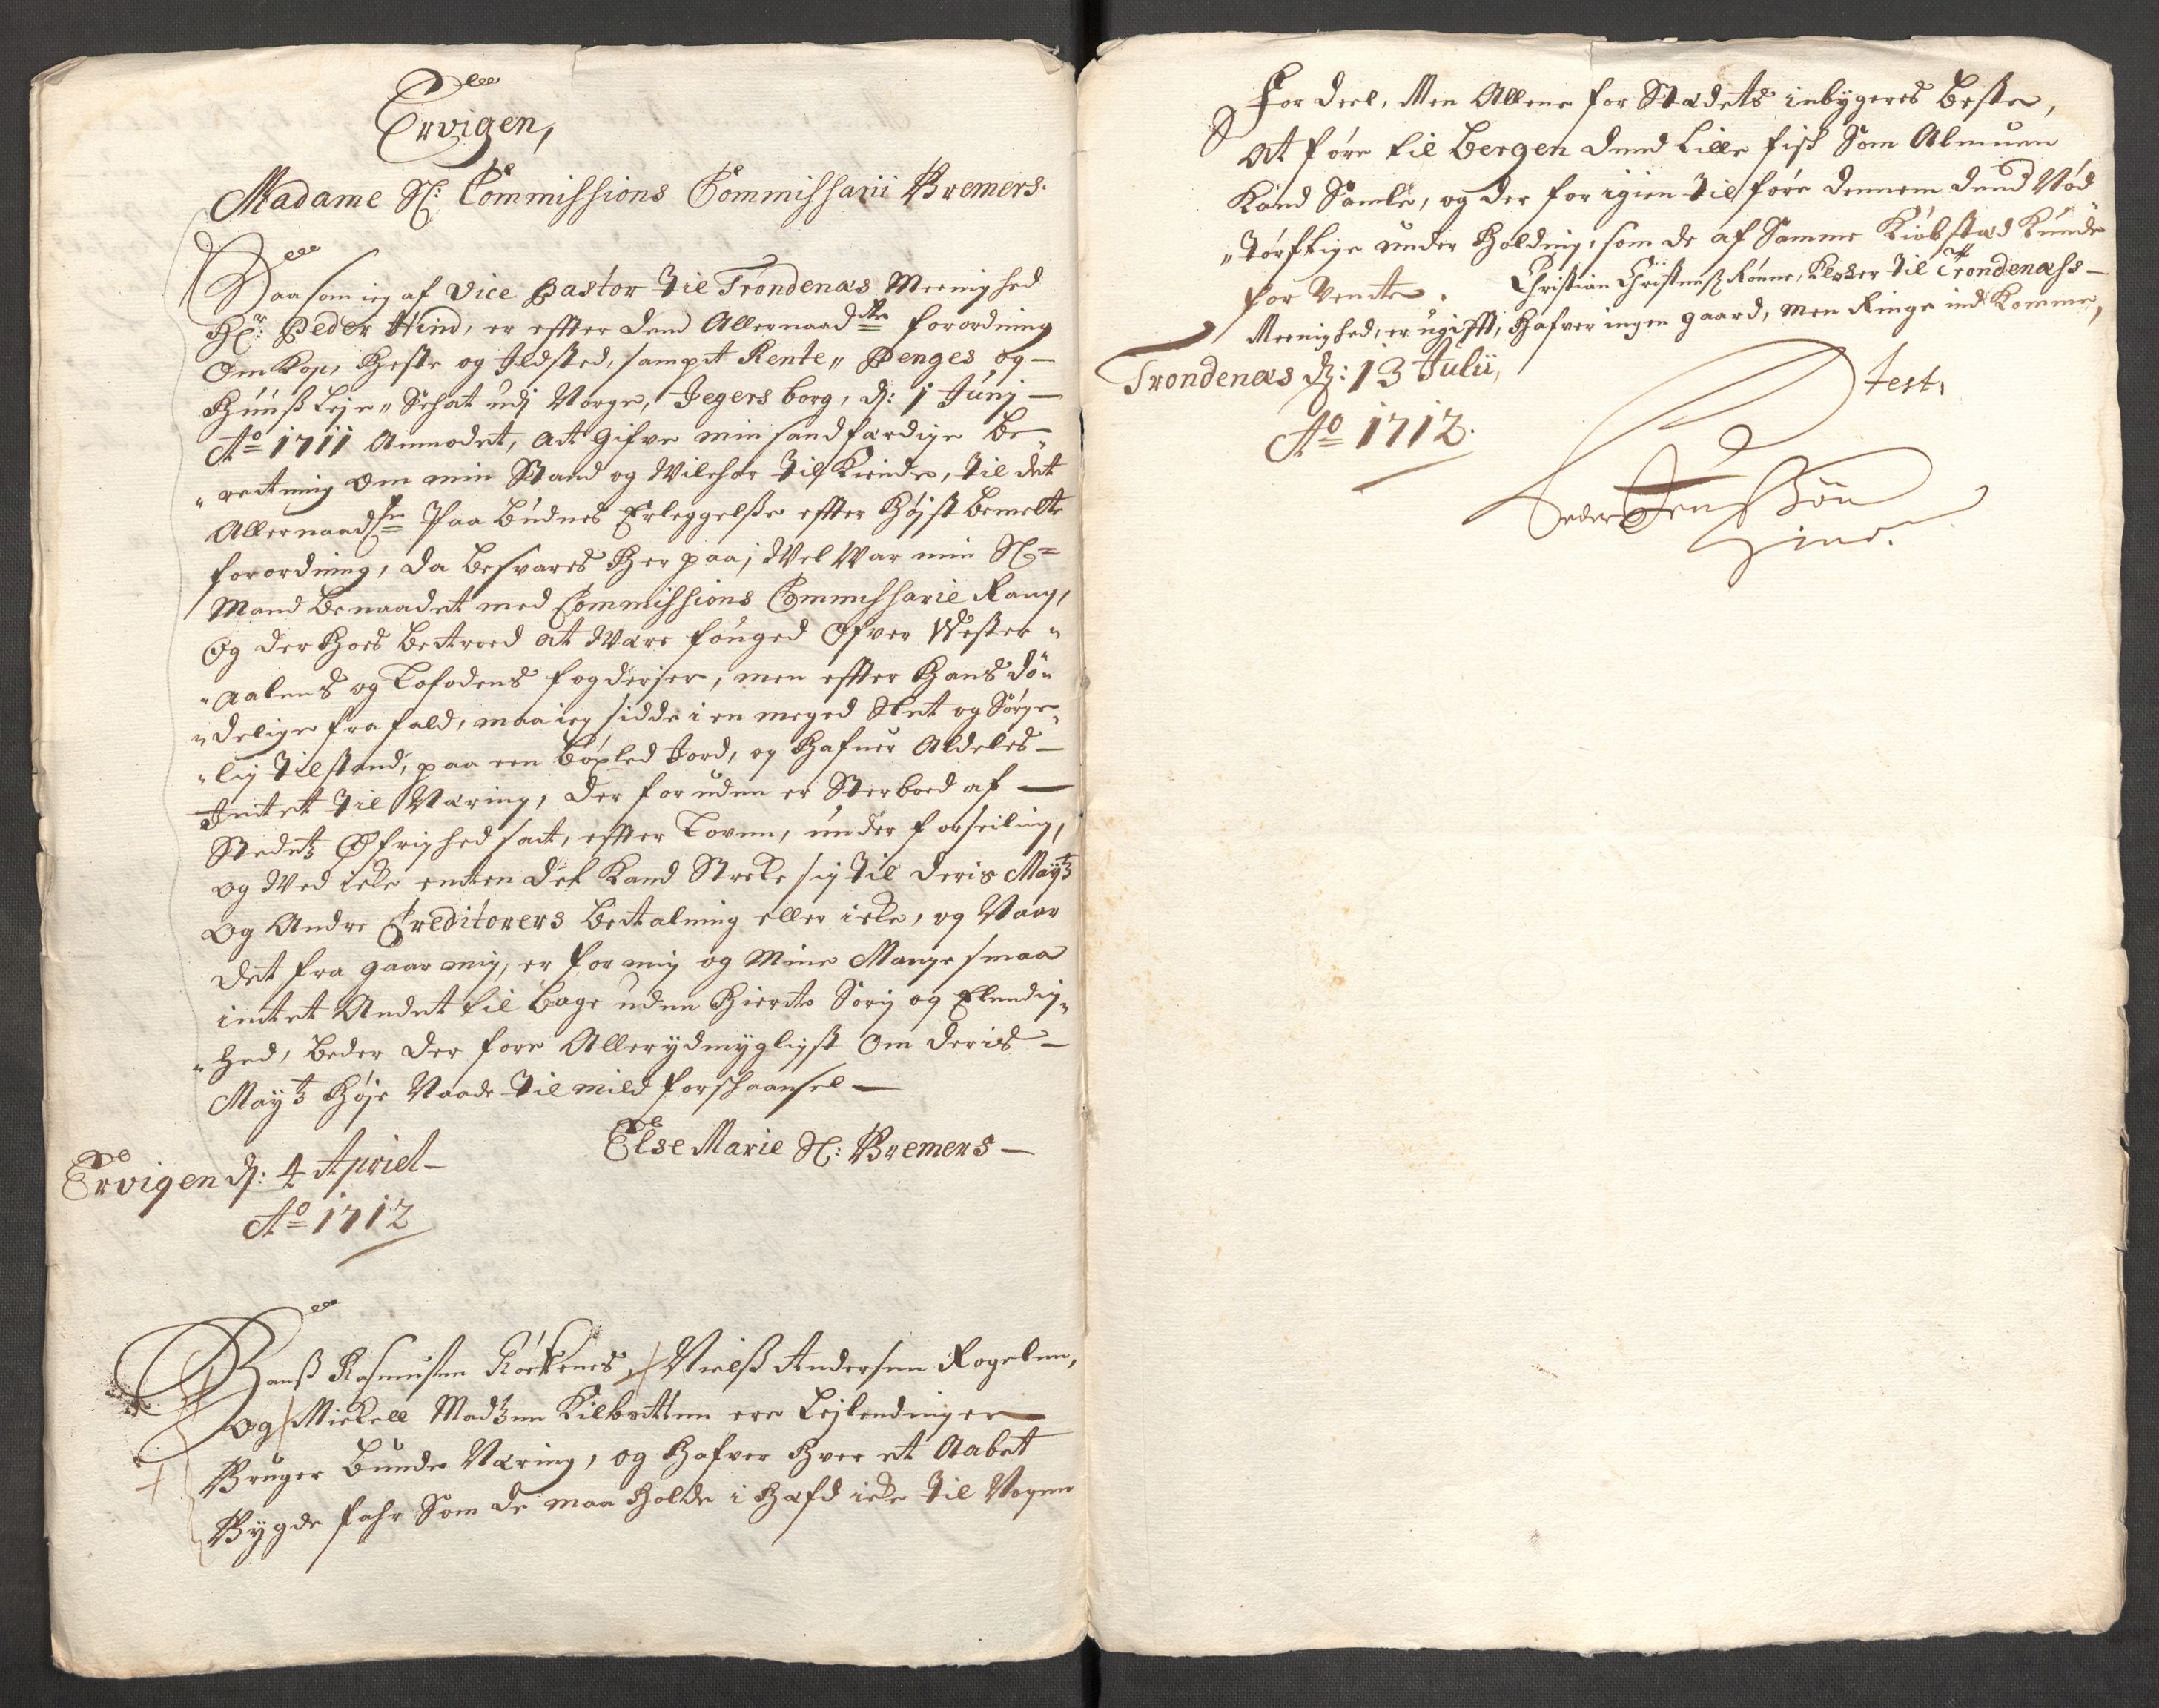 Ervigen,
Madame Sl: Commissions Commissarii Bremers.
Saasom ieg af Vice Pastor til Trondenæs Meenighed
Hr: Peder Hind, er effter dend Allernaadste forordning
Om Kop, Heste og Ildsted, sampt Rente„ Penges og
Huuß Leje„ Schat udj Norge, Jegersborg, dj: 1 Junj
Ao 1711 Anmodet, at Gifve min sandfærdige Be„
„rettning om min Stand og Wilchor til Kiende, til det
Allernaadste Paa Budnes Erleggelße effter Høistbemelte
forordning, da besvares her paa; Wel War min Sl=
Mand benaadet med Commissions Commissarie Rang,
Og der hoes betroed at Wære fouged Ofver Wester„
„aalens og Lofodens fogderier, men effter hans dø„
„delige fra fald, maa ieg sidde i en meged Slet og Sørge„
„lig tilstand, paa een boxled Jord, og hafuer Aldeles
Intet til Næring, der foruden er Sterboed af
Stedetz Øfrighed sat, effter Loven, under forseiling,
og Wed icke enten det Kand Streke sig til deris Maytz
Og Andre Creditorers betalning eller icke, og Naar
det fra gaar mig, er for mig og Mine Mange smaa
intet Andet til bage uden hierte Sorig og Elendig„
„hed, beder der fore Allerydmygligst om deris
Maytz høje Naade til mild forschaansel
Else Marie Sl: Bremers
Ervigen dj: 4 Apriel
Ao 1712
Hanß Rasmusen Röekenes, Nielß Andersen Rogelen,
og Mickell Madtzen Kilbotten ere Lejlendinger
Bruger bunde Næring, og hafver hver et Aabet
Bygde fahr Som de maa holde i hæfd icke til Nogen
For deel, Men Allene for Stædets inbygeres beste,
At føre til Bergen dend Lille fisk Som Almuen
Kand Samle, og der for igien til føre dennem dend Nød
„tørftige under holding, som de af Samme Kiøbstæd Kunde
for Vendte. Christian Christenß Rønne, Klocker til Trondenæss
Meenighed, er ugifft, hafver ingen gaard, men Ringe ind Komme,
Trondenæs dj: 13 Julii,
Ao 1712.
test.
Peder Jenßøn
Hind.